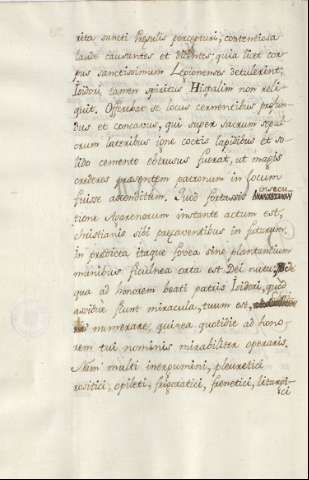 rita sancti Presulis percepturi, contentiosa
laude causantes et dicentes: quia licet cor-
pus sanctissimum Legionenses detulerint,
Isidori, tamen spiritus Hispalim non reli-
quit. Offerebat se locus cernentibus profun-
dus et concavus, qui super sacrum sepul-
crum lateribus igne coctis lapidibus et so-
lido cemento extrusus fuerat, ut magis
crederes praesentem patronum in locum
fuisse absconditum. Quod fortassis insecu-
tione Agarenorum instante actum est,
christianis sibi praecaventibus in futurum.
in predicta itaque fovea sine plantantium
manibus ficulnea orta est Dei nutu,
qua ad honorem beati patris Isidori, quod
assidue fiunt miracula, tuum est,
numerare, qui in ea quotidie ad hono-
rem tui nominis mirabiliter operaris.
Nam multi inergumini, pleuretici
oppleti, frigoratici, frenetici, liturgi-
ci